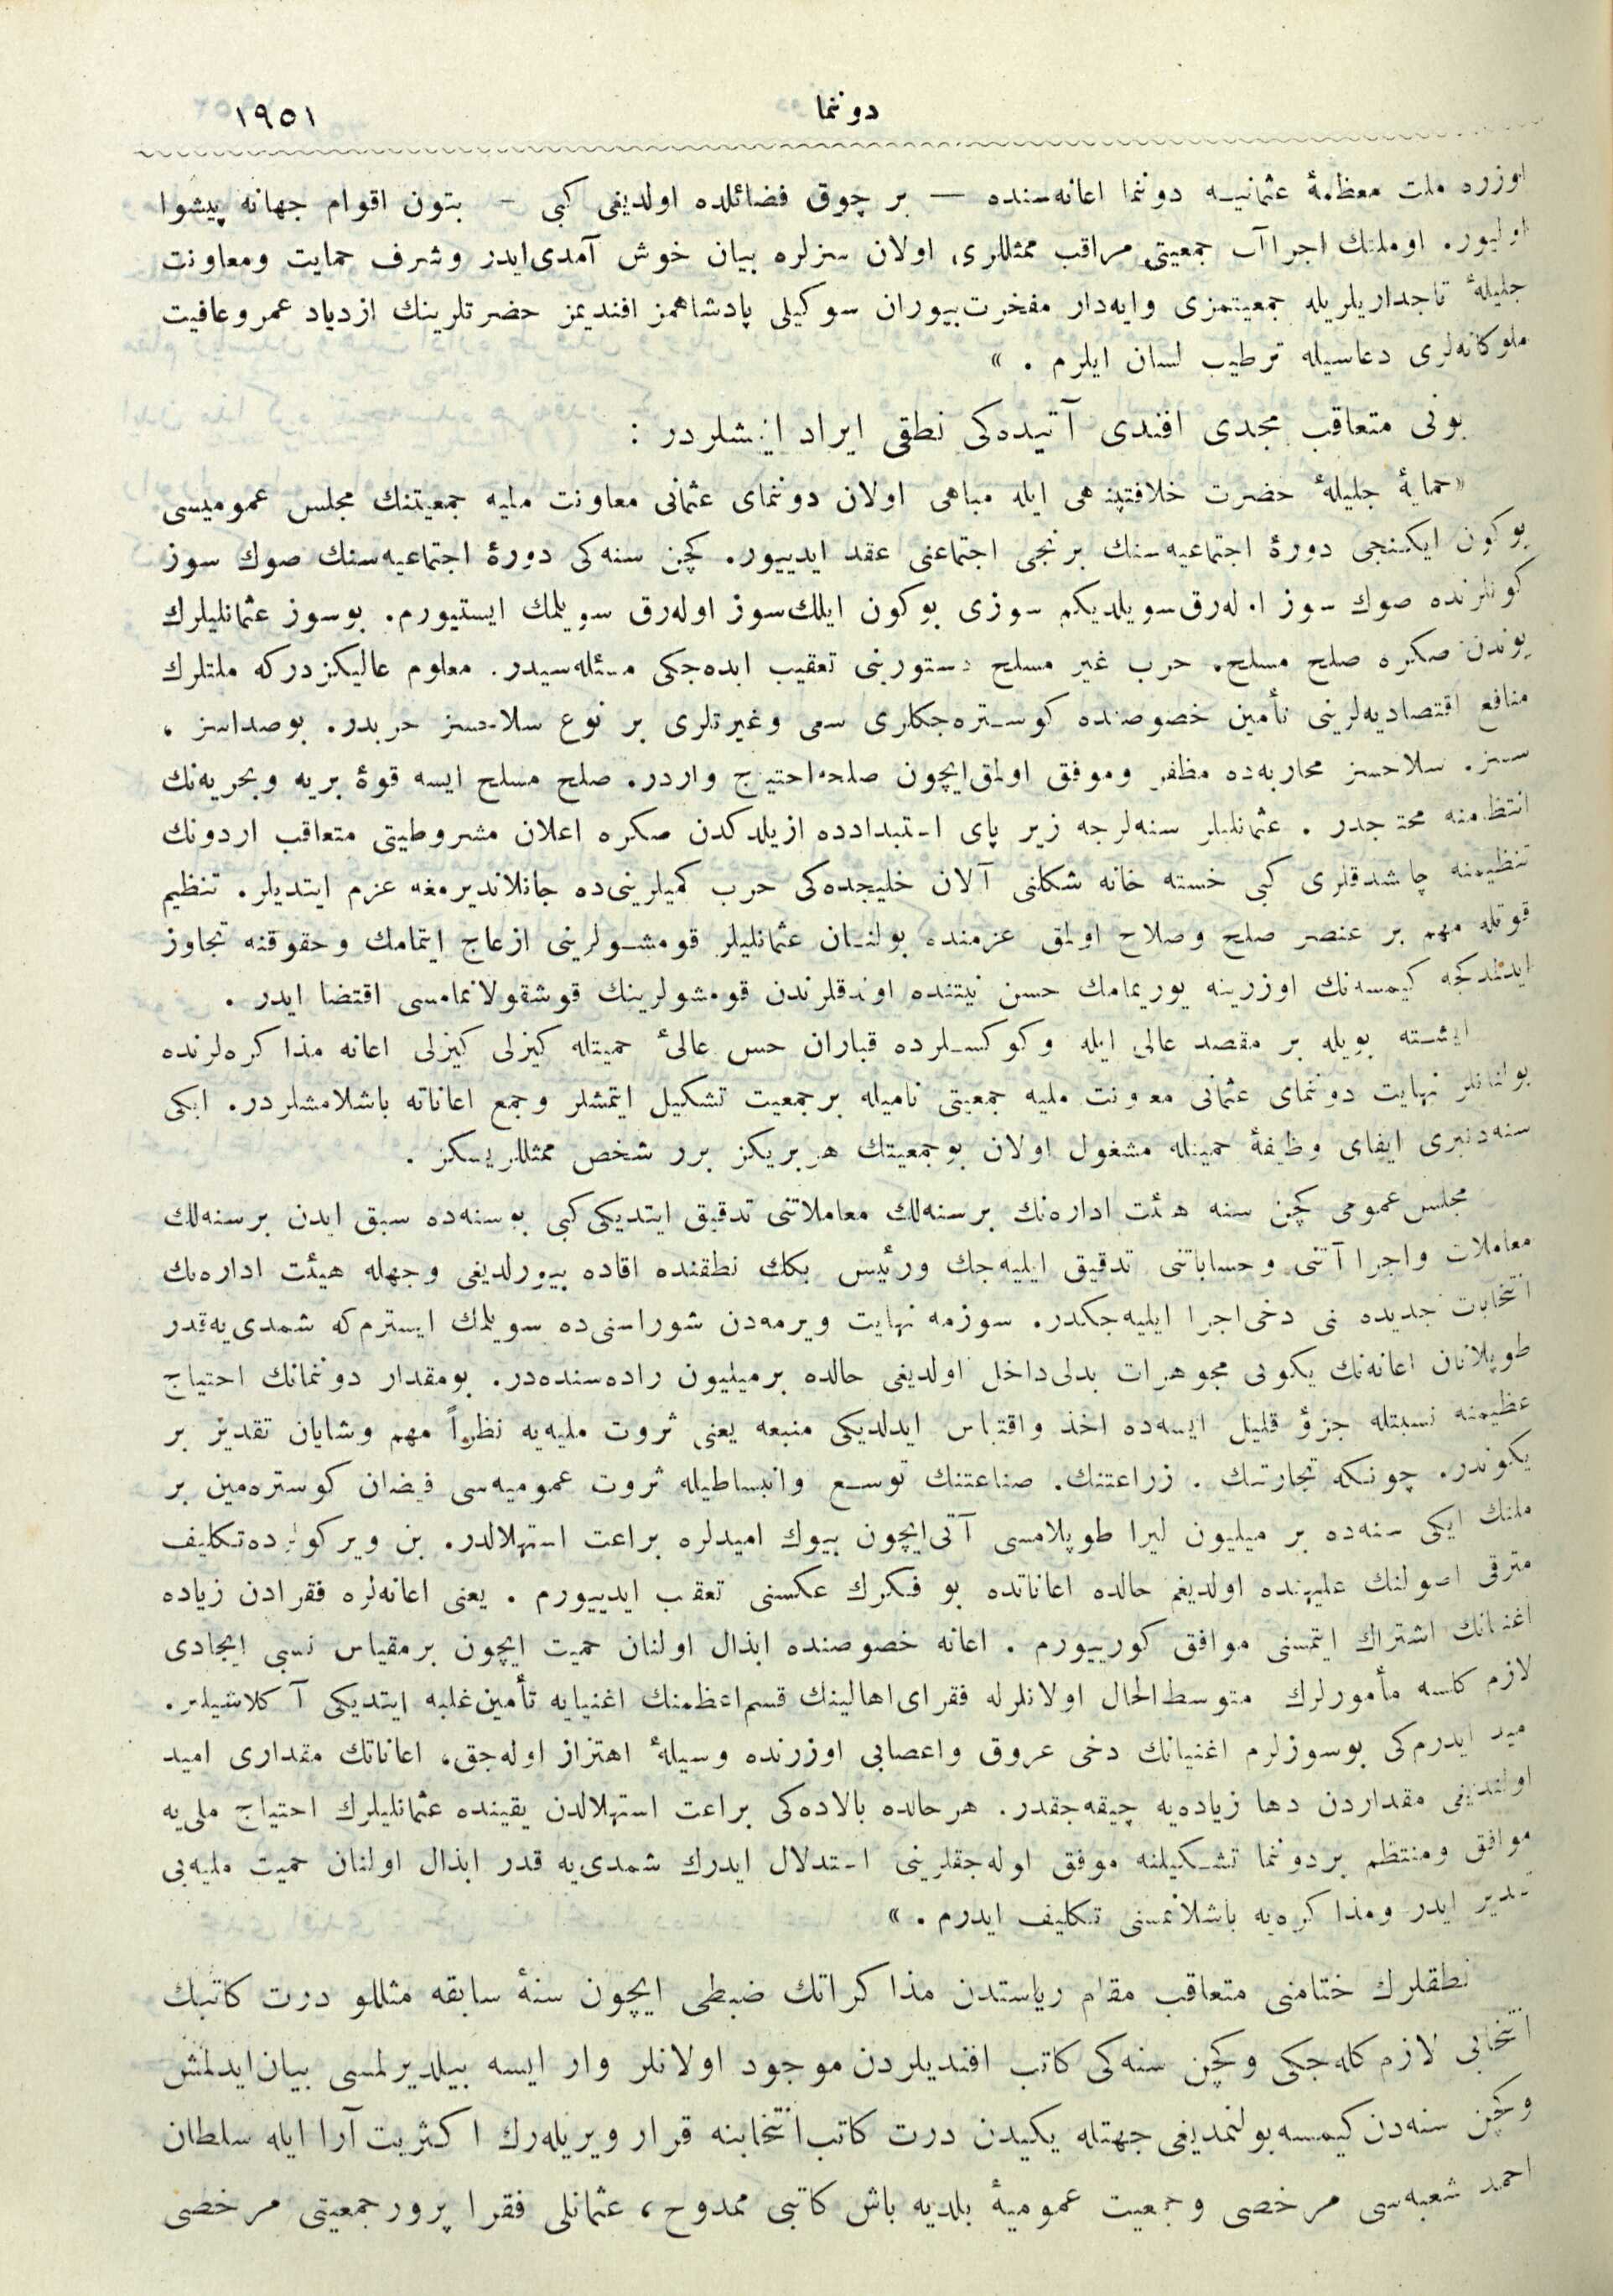 دوننما ١٩٥١
اوزره ملت معظمهٔ عثمانیه دوننما اعانه‌سنده — بر چوق فضائلده اولدیغی کبی — بتون اقوام جهانه پیشوا
اولیور. او ملتك اجراآت جمعیتی مراقب ممثللری اولان سزلره بیان خوش آمدی ایدر وشرف حمایت ومعاونت
جلیلهٔ تاجداریلریله جمعیتمزی وایه‌دار مفخرت بیوران سوکیلی پادشاهمز افندیمز حضرتلرینك ازدیاد عمر وعافیت
ملوکانه‌لری دعاسیله ترطیب لسان ایلرم . »
بونی متعاقب مجدی افندی آتیده‌کی نطقی ایراد ایتمشلردر :
«حمایهٔ جلیلهٔ حضرت خلافتپناهی ایله مباهی اولان دوننمای عثمانی معاونت ملیه جمعیتنك مجلس عمومیسی
بوکون ایکنجی دورهٔ اجتماعیه‌سنك برنجی اجتماعنی عقد ایدییور. کچن سنه‌کی دورهٔ اجتماعیه‌سنك صوك سوز
کونلرنده صوك سوز اوله‌رق سویلدیکم سوزی بوکون ایلك سوز اوله‌رق سویلمك ایستیورم. بو سوز عثمانلیلرك
بوندن صکره صلح مسلح، حرب غیر مسلح دستورینی تعقیب ایده‌جکی مسئله‌سیدر. معلوم عالیکزدرکه ملتلرك
منافع اقتصادیه‌لرینی تأمین خصوصنده کوستره‌جکلری سعی وغیرتلری بر نوع سلاحسز حربدر. بو صداسز ،
سسز. سلاحسز محاربه‌ده مظفر وموفق اولمق ایچون صلحه احتیاج واردر. صلح مسلح ایسه قوهٔ بریه وبحریه‌نك
انتظامنه محتاجدر . عثمانلیلر سنه‌لرجه زیر پای استبدادده ازیلدکدن صکره اعلان مشروطیتی متعاقب اردونك
تنظیمنه چالشدقلری کبی خسته خانه شکلنی آلان خلیجده‌کی حرب کمیلرینی‌ده جانلاندیرمغه عزم ایتدیلر. تنظیم
قوتله مهم بر عنصر صلح وصلاح اولمق عزمنده بولنان عثمانلیلر قومشولرینی ازعاج ایتمامك وحقوقنه تجاوز
ایدلمدکجه کیمسه‌نك اوزرینه یوریمامك حسن نیتنده اولدقلرندن قومشولرینك قوشقولانمامسی اقتضا ایدر .
ایشته بویله بر مقصد عالی ایله وکوکسلرده قباران حس عالیٔ حمیتله کیزلی کیزلی اعانه مذاکره‌لرنده
بولنانلر نهایت دوننمای عثمانی معاونت ملیه جمعیتی نامیله بر جمعیت تشکیل ایتمشلر وجمع اعاناته باشلامشلردر. ایکی
سنه‌دنبری ایفای وظیفهٔ حمیتله مشغول اولان بو جمعیتك هر بریکز برر شخص ممثللریسکز .
مجلس عمومی کچن سنه هیئت اداره‌نك برسنه‌لك معاملاتنی تدقیق ایتدیکی کبی بو سنه‌ده سبق ایدن برسنه‌لك
معاملات واجراآتنی وحساباتنی تدقیق ایلیه‌جك ورئیس بکك نطقنده افاده بیورلدیغی وجهله هیئت اداره‌نك
انتخابات جدیده نی دخی اجرا ایلیه‌جکدر. سوزمه نهایت ویرمه‌دن شوراسنی‌ده سویلمك ایسترم که شمدی‌یه قدر
طوپلانان اعانه‌نك یکونی مجوهرات بدلی داخل اولدیغی حالده بر میلیون راده‌سنده‌در. بومقدار دوننمانك احتیاج
عظیمنه نسبتله جزؤ قلیل ایسه‌ده اخذ واقتباس ایدلدیکی منبعه یعنی ثروت ملیه‌یه نظراً مهم وشایان تقدیر بر
یکوندر. چونکه تجارتنك . زراعتنك. صناعتنك توسع وانبساطیله ثروت عمومیه‌سی فیضان کوستره‌مین بر
ملتك ایکی سنه‌ده بر میلیون لیرا طوپلامسی آتی ایچون بیوك امیدلره براعت استهلالدر. بن ویرکولرده تکلیف
مترقی اصولنك علیهنده اولدیغم حالده اعاناتده بو فکرك عکسنی تعقیب ایدییورم . یعنی اعانه‌لره فقرادن زیاده
اغنیانك اشتراك ایتمسنی موافق کورییورم . اعانه خصوصنده ابذال اولنان حمیت ایچون بر مقیاس نسبی ایجادی
لازم کلسه مأمورلرك متوسط الحال اولانلرله فقرای اهالینك قسم اعظمنك اغنیایه تأمین غلبه ایتدیکی آکلاشیلیر.
امید ایدرم کی بو سوزلرم اغنیانك دخی عروق واعصابی اوزرنده وسیلهٔ اهتزاز اوله‌جق، اعاناتك مقداری امید
اولندیغی مقداردن دها زیاده‌یه چیقه‌جقدر. هر حالده بالاده‌کی براعت استهلالدن یقینده عثمانلیلرك احتیاج ملی‌یه
موافق ومنتظم بر دوننما تشکیلنه موفق اوله‌جقلرینی استدلال ایدرك شمدی‌یه قدر ابذال اولنان حمیت ملیه‌یی
تقدیر ایدر ومذاکره‌یه باشلانمسنی تکلیف ایدرم . »
نطقلرك ختامنی متعاقب مقام ریاستدن مذاکراتك ضبطی ایچون سنهٔ سابقه مثللو درت کاتبك
انتخابی لازم کله‌جکی وکچن سنه‌کی کاتب افندیلردن موجود اولانلر وار ایسه بیلدیرلمسی بیان ایدلمش
وکچن سنه‌دن کیمسه بولنمدیغی جهتله یکیدن درت کاتب انتخابنه قرار ویریله‌رك اکثریت آرا ایله سلطان
احمد شعبه‌سی مرخصی وجمعیت عمومیهٔ بلدیه باش کاتبی ممدوح، عثمانلی فقرا پرور جمعیتی مرخصی